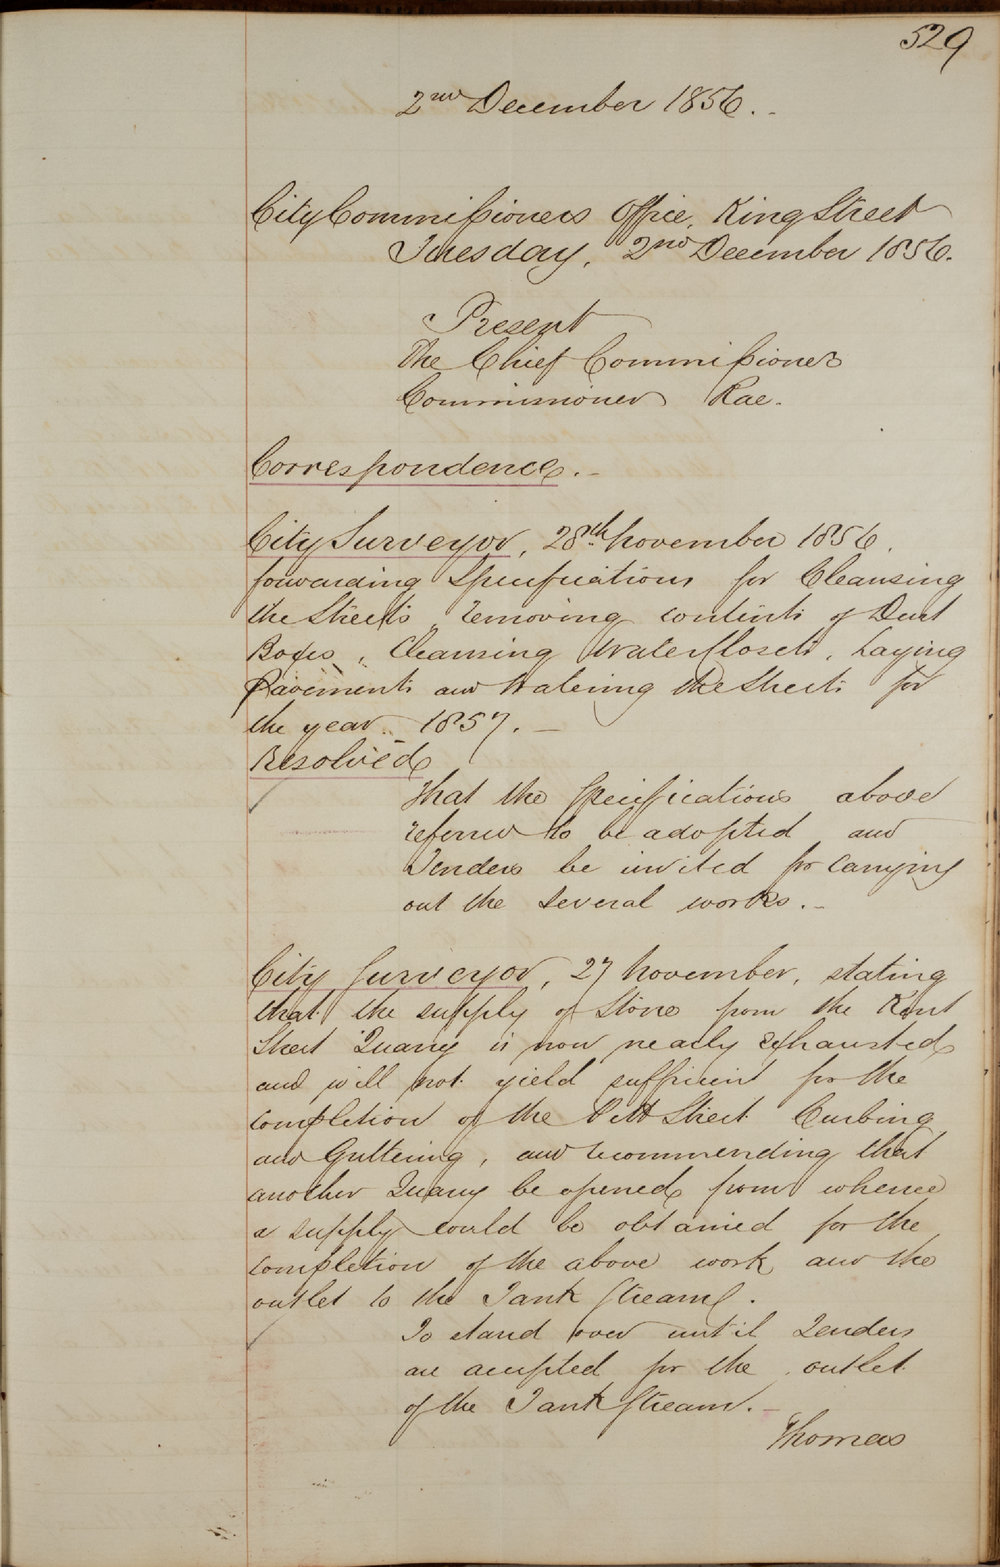 529
2nd December 1856.
City Commissioners Office, King Street
Tuesday, 2nd December 1856.
Present
The Chief Commissioner
Commissioner Rae.
Correspondence.
City Surveyor, 28th November 1856.
forwarding Specifications for Cleansing
the Streets, removing contents of Dust
Boxes, Cleansing Waterclosets, Laying
Pavements and Watering the Streets for
the year 1857.
Resolved
That the Specifications above
referred to be adopted and
Tenders be invited for carrying
out the several works.
City Surveyor, 27 November, stating
that the supply of Stone from the Kent
Street Quarry is now nearly exhausted
and will not yield sufficient for the
completion of the Pitt Street Curbing
and Guttering, and recommending that
another Quarry be opened from whence
a supply could be obtained for the
completion of the above work and the
outlet to the Tank Stream.
To stand over until Tenders
are accepted for the outlet
of the Tank Stream.
Thomas